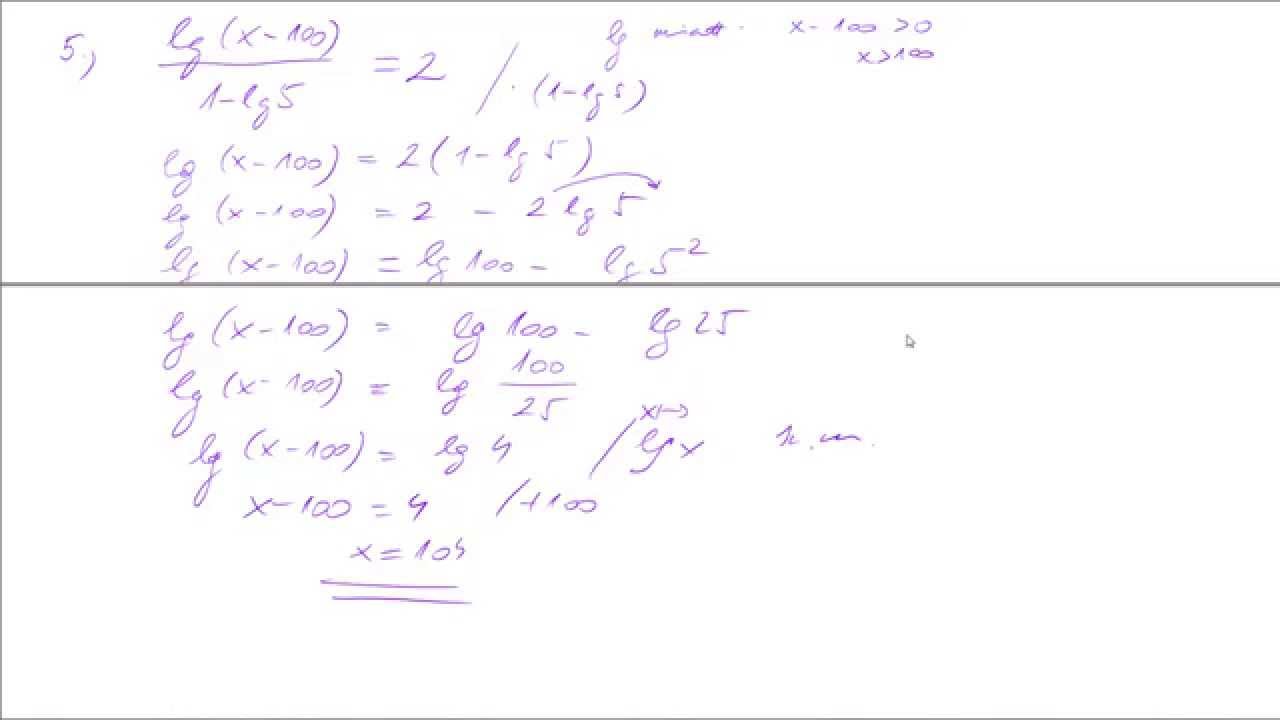 5.) lg (x-100) / 1-lg 5 = 2 / · (1-lg 5) lg miatt x-100 > 0
x > 100
lg (x-100) = 2 (1-lg 5)
lg (x-100) = 2 - 2 lg 5
lg (x-100) = lg 100 - lg 5²
lg (x-100) = lg 100 - lg 25
lg (x-100) = lg 100/25
lg (x-100) = lg 4 / x↦ lg x
x-100 = 4 /+100
x = 104